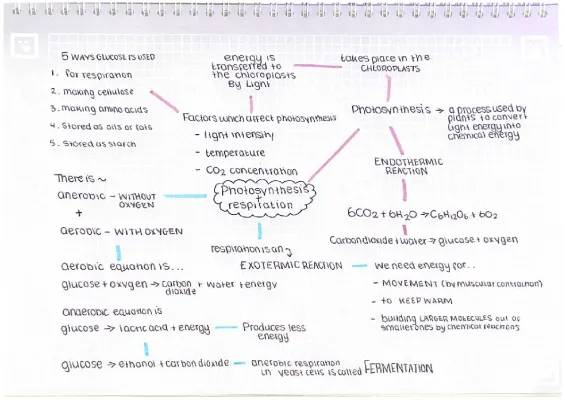 5 WAYS GLUCOSE IS USED
1. for respiration
2. making cellulose
3. making amino acids
4. stored as oils or fats
5. stored as starch
energy is
transferred to
the chloroplasts
By Light
takes place in the
CHLOROPLASTS
Factors which affect photosynthesis
- light intensity
- temperature
- CO2 concentration
Photosynthesis → a process used by
plants to convert
light energy into
chemical energy
ENDOTHERMIC
REACTION
6CO2 + 6H2O → C6H12O6 + 6O2
Carbon dioxide + water → glucose + oxygen
Photosynthesis
+
respiration
There is ~
anerobic - WITHOUT
OXYGEN
+
aerobic - WITH OXYGEN
aerobic equation is...
glucose + oxygen → carbon + water + energy
dioxide
anaerobic equation is
glucose → lactic acid + energy — Produces less
energy
glucose → ethanol + carbon dioxide — anerobic respiration
in yeast cells is called FERMENTATION
respiration is an
EXOTERMIC REACTION — we need energy for..
- MOVEMENT (by muscular contraction)
- to KEEP WARM
- building LARGER MOLECULES out of
smaller ones by chemical reactions